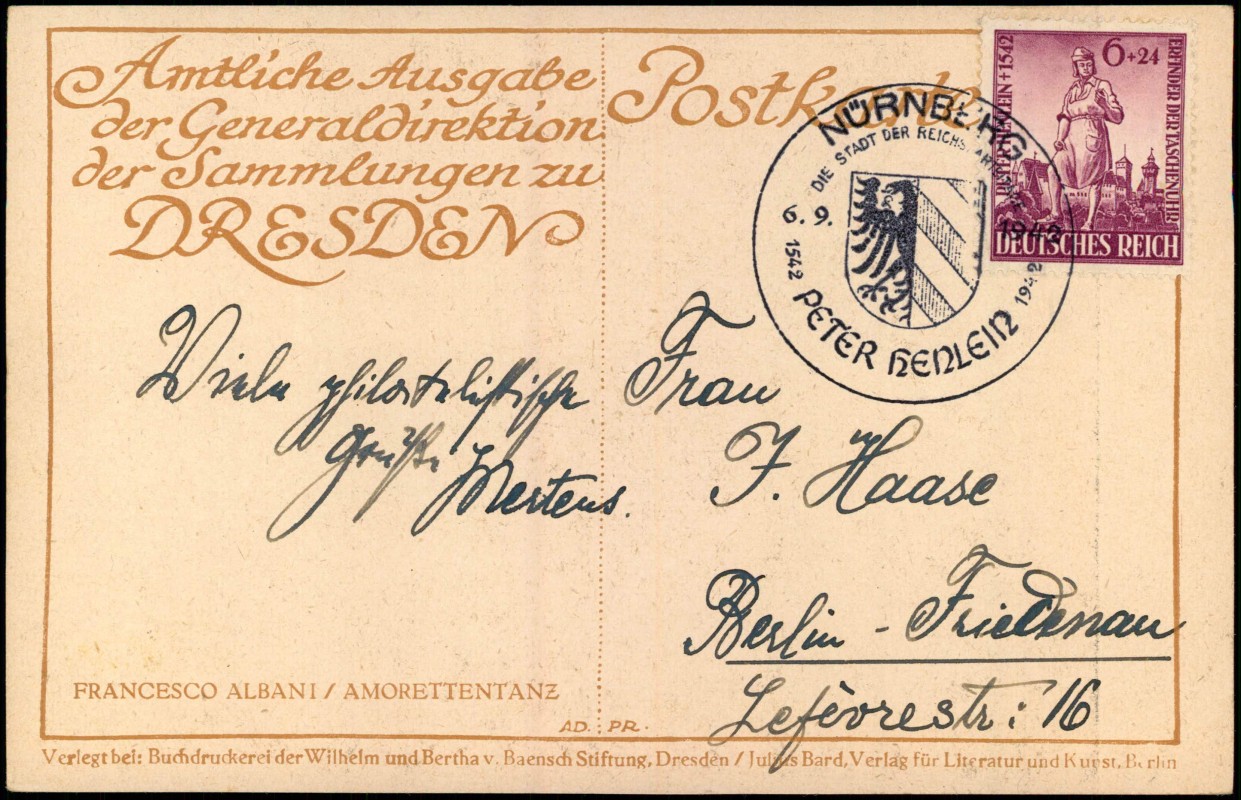 Amtliche Ausgabe
der Generaldirektion
der Sammlungen zu
DRESDEN
Postkarte
NÜRNBERG
DIE STADT DER REICHSPARTEITAGE
6. 9. 1942
1542 PETER HENLEIN 1942
6+24
PETER HENLEIN + 1542
ERFINDER DER TASCHENUHR
DEUTSCHES REICH
Viele philatelistische
Grüße Mertens.
Frau
J. Haase
Berlin - Friedenau
Lefèvrestr: 16
FRANCESCO ALBANI / AMORETTENTANZ
AD. PR.
Verlegt bei: Buchdruckerei der Wilhelm und Bertha v. Baensch Stiftung, Dresden / Julius Bard, Verlag für Literatur und Kunst, Berlin